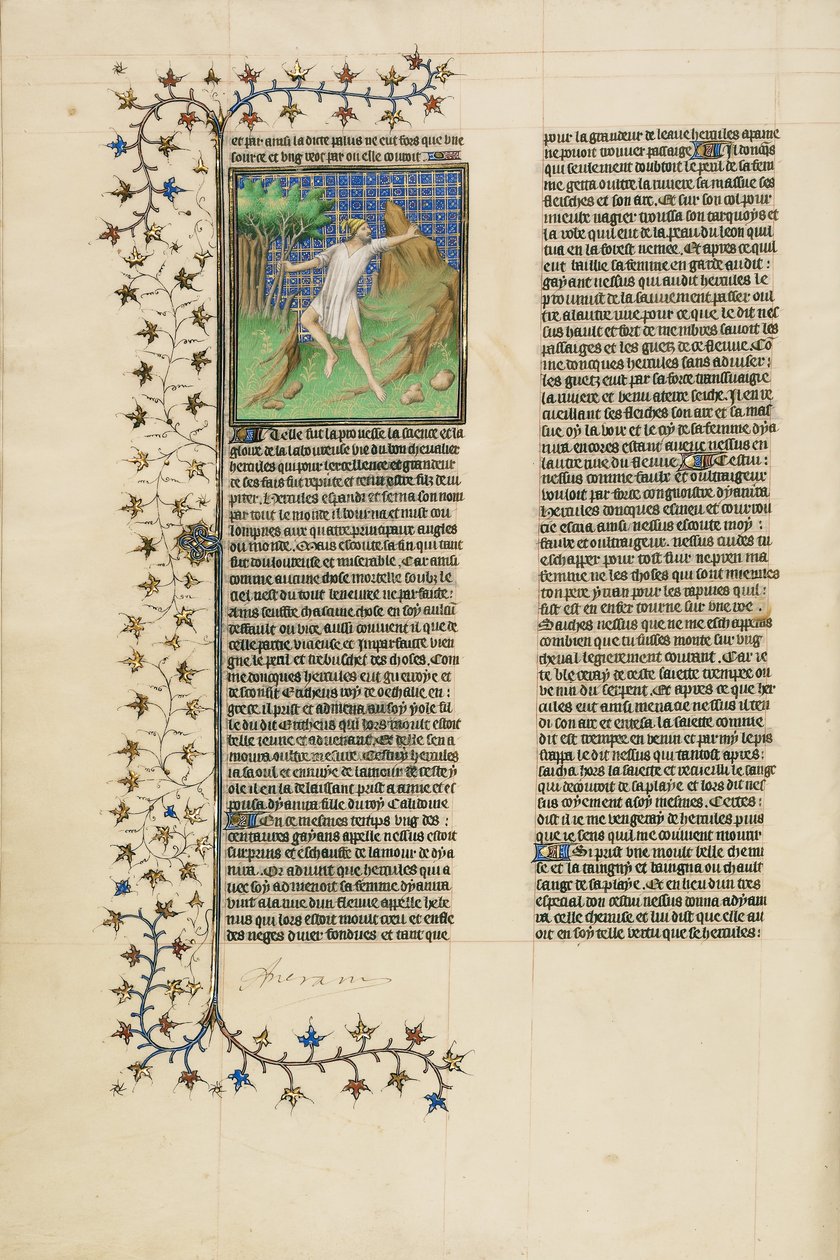 et par ainsi la dicte palus ne eut fors que une
source et ung ruot par ou elle couroit
Telle fut la prouesse la science et la
gloire de la laboureuse vie du bon chevalier
hercules qui pour lexcellence et grandeur
de ses fais fut repute et tenu estre filz de iu
piter. Hercules espandi et sema son nom
par tout le monde il bourna et mist cou
lompnes aux quatre principaux angles
du monde. Mais escoute sa fin qui tant
fut douloureuse et miserable. Car ainsi
comme aucune chose mortelle soubz le
ciel nest du tout beneuree ne parfaicte:
Ains seuffre chascune chose en soy aulcun
deffault ou vice, aussi convient il que de
celle partie vicieuse et imparfaicte vien
gne le peril et trebuschet des choses. Com
me doncques hercules eut guerroye et
desconfit Eritheus roy de oechalie en:
grece. il prist et admena avec soy yole fil
le du dit Eritheus qui lors moult estoit
belle ieune et advenant. Et delle sen a
moura oultre mesure. Cestuy hercules
ia saoul et ennuye de lamour de ceste y
ole il en la delaissant prist a amie et es
pousa dyanira fille du roy Calidoine
En ce mesmes temps ung des:
centaures gayans appelle nessus estoit
surprins et eschauffe de lamour de dya
nira. Or advint que hercules qui a
vec soy admenoit sa femme dyanira
vint a la rive dun fleuve appelle hebe
nus qui lors estoit moult creu et enfle
des neges diver fondues et tant que
pour la grandeur de leaue hercules a paine
ne povoit trouver passaige Il doncques
qui seulement doubtoit le peril de sa fem
me getta oultre la riviere sa massue ses
fleisches et son arc. Et sur son col pour
mieulx nagier troussa son tarquoys et
la robe quil eut de la peau du leon quil
tua en la forest nemee. Et apres ce quil
eut baillie sa femme en garde au dit:
gayant nessus qui audit hercules le
promist de la sauvement passer oul
tre a lautre rive pour ce que le dit nes
sus hault et fort de membres savoit les
passaiges et les guetz de ce fleuve. Co
me doncques hercules sans adviser:
les guetz eust par sa force transnaigie
la riviere et venu a terre seiche. Il en re
cueillant ses fleiches son arc et sa mas
sue oy la voix et le cry de sa femme dya
nira encores estant avecques nessus en
lautre rive du fleuve Cestui:
nessus comme faulx et oultraigeux
vouloit par force congnoistre dyanira
Hercules doncques esmeu et courrou
cie escria ainsi. nessus escoute moy:
faulx et oultraigeux. nessus cuides tu
eschapper pour tost fuir ne pren ma
femme ne les choses qui sont miennes
ton pere yxian pour les rapines quil:
fist est en enfer tourne sur une roe.
Saiches nessus que ne me eschappera
combien que tu fusses monte sur ung
cheval legierement courant. Car ie
te bleceray de ceste saiette trempee ou
venin du serpent. Et apres ce que her
cules eut ainsi menacie nessus il ten
di son arc et entesa. la saiette comme
dit est trempee en venin et parmy le pis
frappa le dit nessus qui tantost apres:
saicha hors la saiette et recueilli le sang
qui decouroit de sa playe et lors dit nes
sus coyement a soy mesmes. Certes:
dist il ie me vengeray de hercules puis
que ie sens quil me convient mourir
Si prist une moult belle chemi
se et la taingny et baingna ou chault
sang de sa playe. Et en lieu dun tres
especial don cestui nessus donna a dyani
ra celle chemise et lui dist que elle au
oit en soy telle vertu que se hercules: